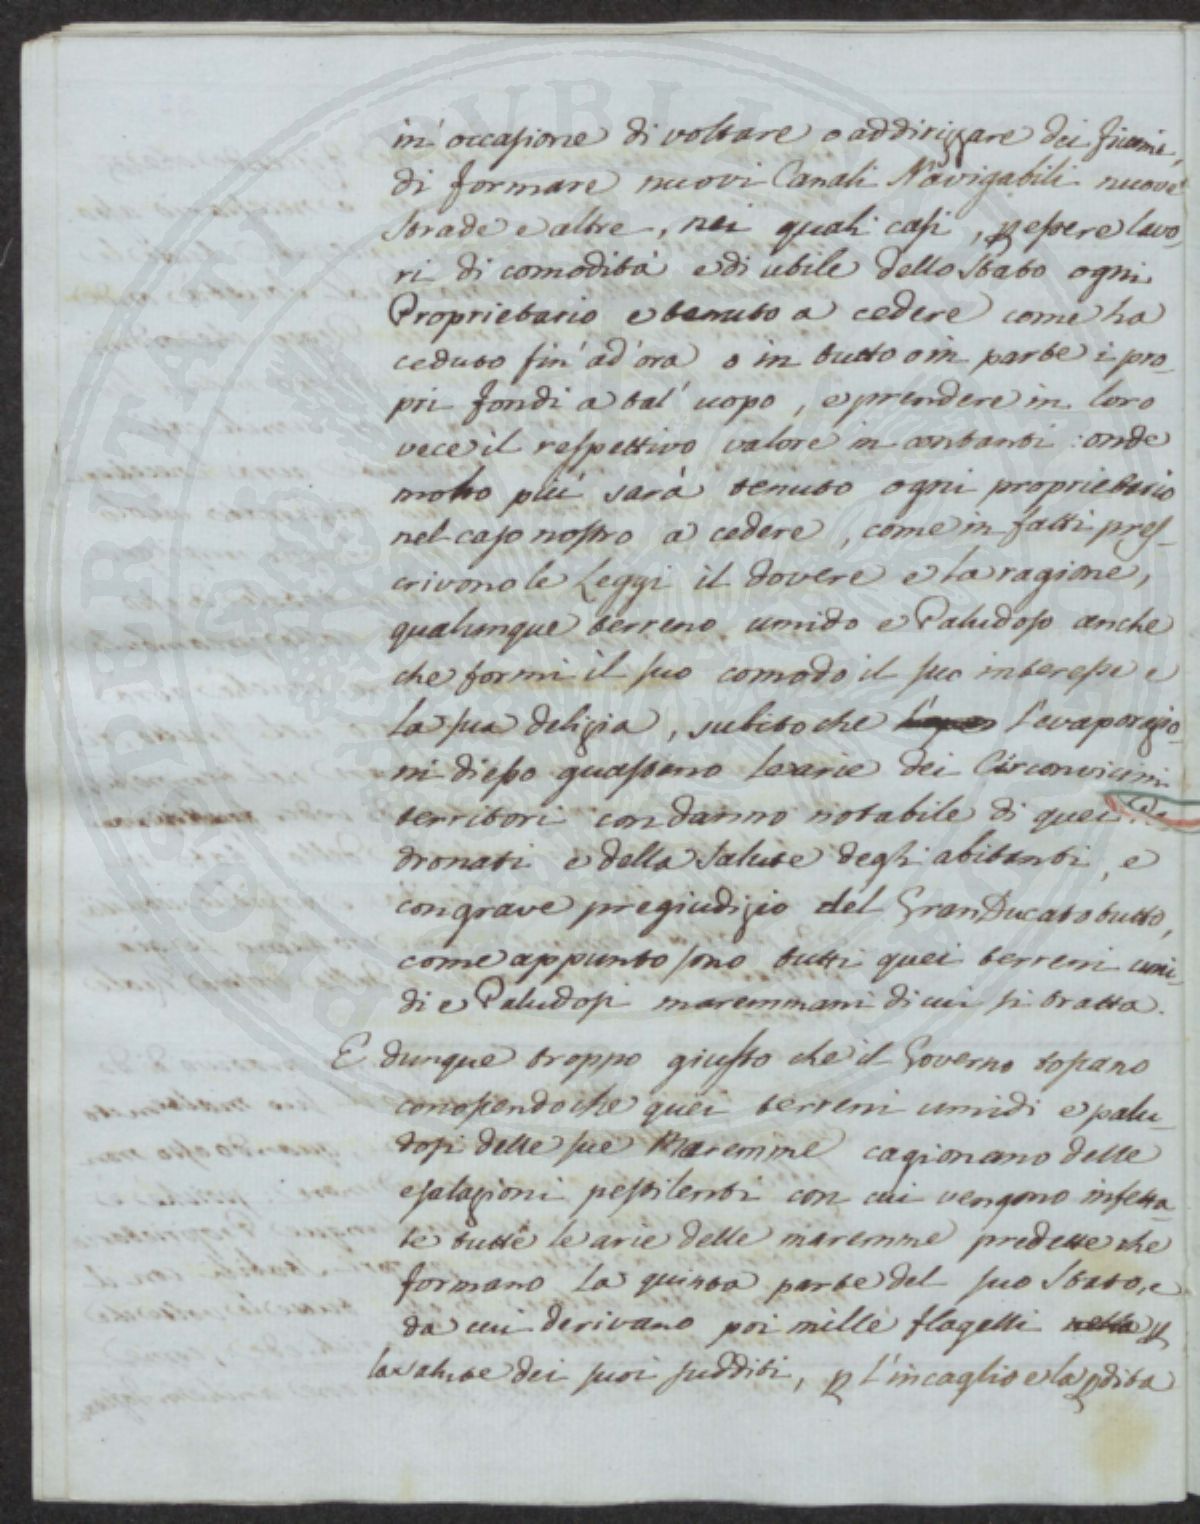 in' occasione di voltare o addirizzare dei fiumi,
di formare nuovi Canali Navigabili nuove
strade e altre, nei quali casi, p essere lavo-
ri di comodità e di utile dello Stato ogni
Proprietario e tenuto a cedere come ha
ceduto fin' ad' ora o in tutto o in parte i pro-
pri fondi a tal' uopo, e prendere in loro
vece il respettivo valore in contanti: onde
molto più sarà tenuto ogni proprietario
nel caso nostro a cedere, come in fatti pres-
crivono le Leggi il dovere e la ragione,
qualunque terreno umido e Paludoso anche
che formi il suo comodo il suo interesse e
la sua delizia, subito che l'evaporazio-
ni di esso guastano le arie dei Circonvicini
territori con danno notabile di quei Pa
dronati e della salute degli abitanti, e
con grave pregiudizio del Gran Ducato tutto,
come appunto sono tutti quei terreni umi-
di e Paludosi maremmani di cui si tratta.
E dunque troppo giusto che il Governo tosano
conosendo che quei terreni umidi e palu-
dosi delle sue Maremme cagionano delle
esalazioni pestilenti con cui vengono infetta-
te tutte le arie delle maremme predette che
formano la quinta parte del suo Stato, e
da cui derivano poi mille flagelli nella p
la salute dei suoi sudditi, p l'incaglio e la pdita
PROSPERITATI PUBLICAE